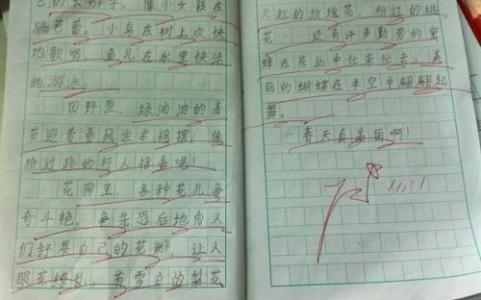 色的长裙子，像小女孩在
跳芭蕾。小鸟在树上欢快
地歌唱，鱼儿在水里快活
地游泳。
田野里，绿油油的麦
苗迎着春风左右摇摆，像
给过路的行人招手呢！
花园里，各种花儿争
奇斗艳，争先恐后地向人
们舒展自己的花瓣，让人
眼花缭乱，有雪白的梨花
火红的玫瑰花，粉红的桃
花……还有许多勤劳的蜜
蜂在花丛中忙来忙去，美
丽的蝴蝶在半空中翩翩起
舞。
春天真美丽啊！